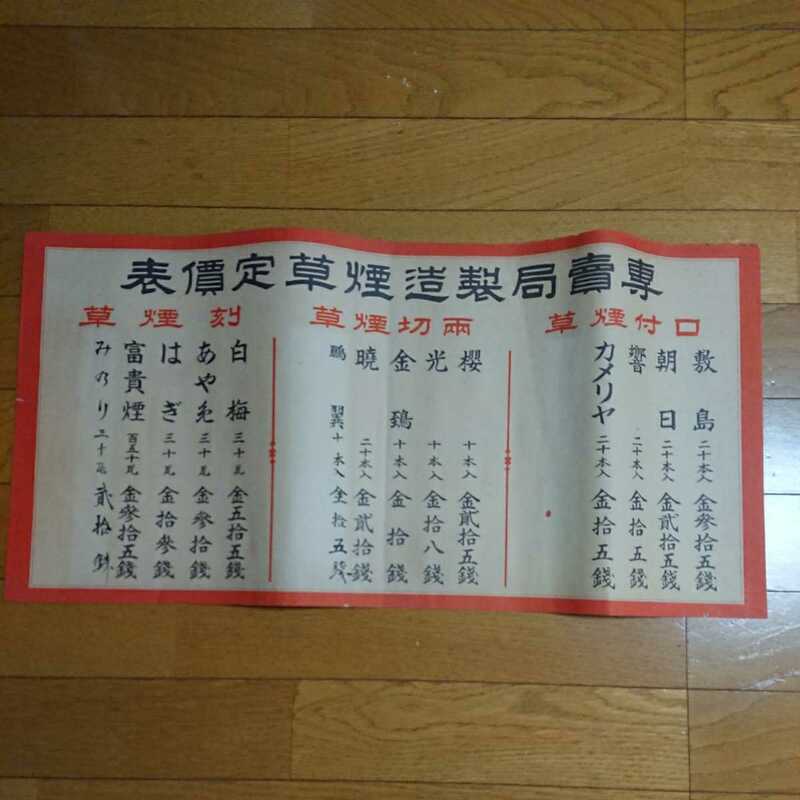 專賣局製造煙草定價表
口付煙草
敷島 二十本入 金參拾五錢
朝日 二十本入 金貳拾五錢
響 二十本入 金拾五錢
カメリヤ 二十本入 金拾五錢
兩切煙草
櫻 十本入 金貳拾五錢
光 十本入 金拾八錢
金鵄 十本入 金拾錢
曉 二十本入 金貳拾錢
鵬翼 十本入 金拾五錢
刻煙草
白梅 三十瓦 金五拾五錢
あやめ 三十瓦 金參拾錢
はぎ 三十瓦 金拾參錢
富貴煙 百五十瓦 金參拾五錢
みのり 三十瓦 貳拾錢